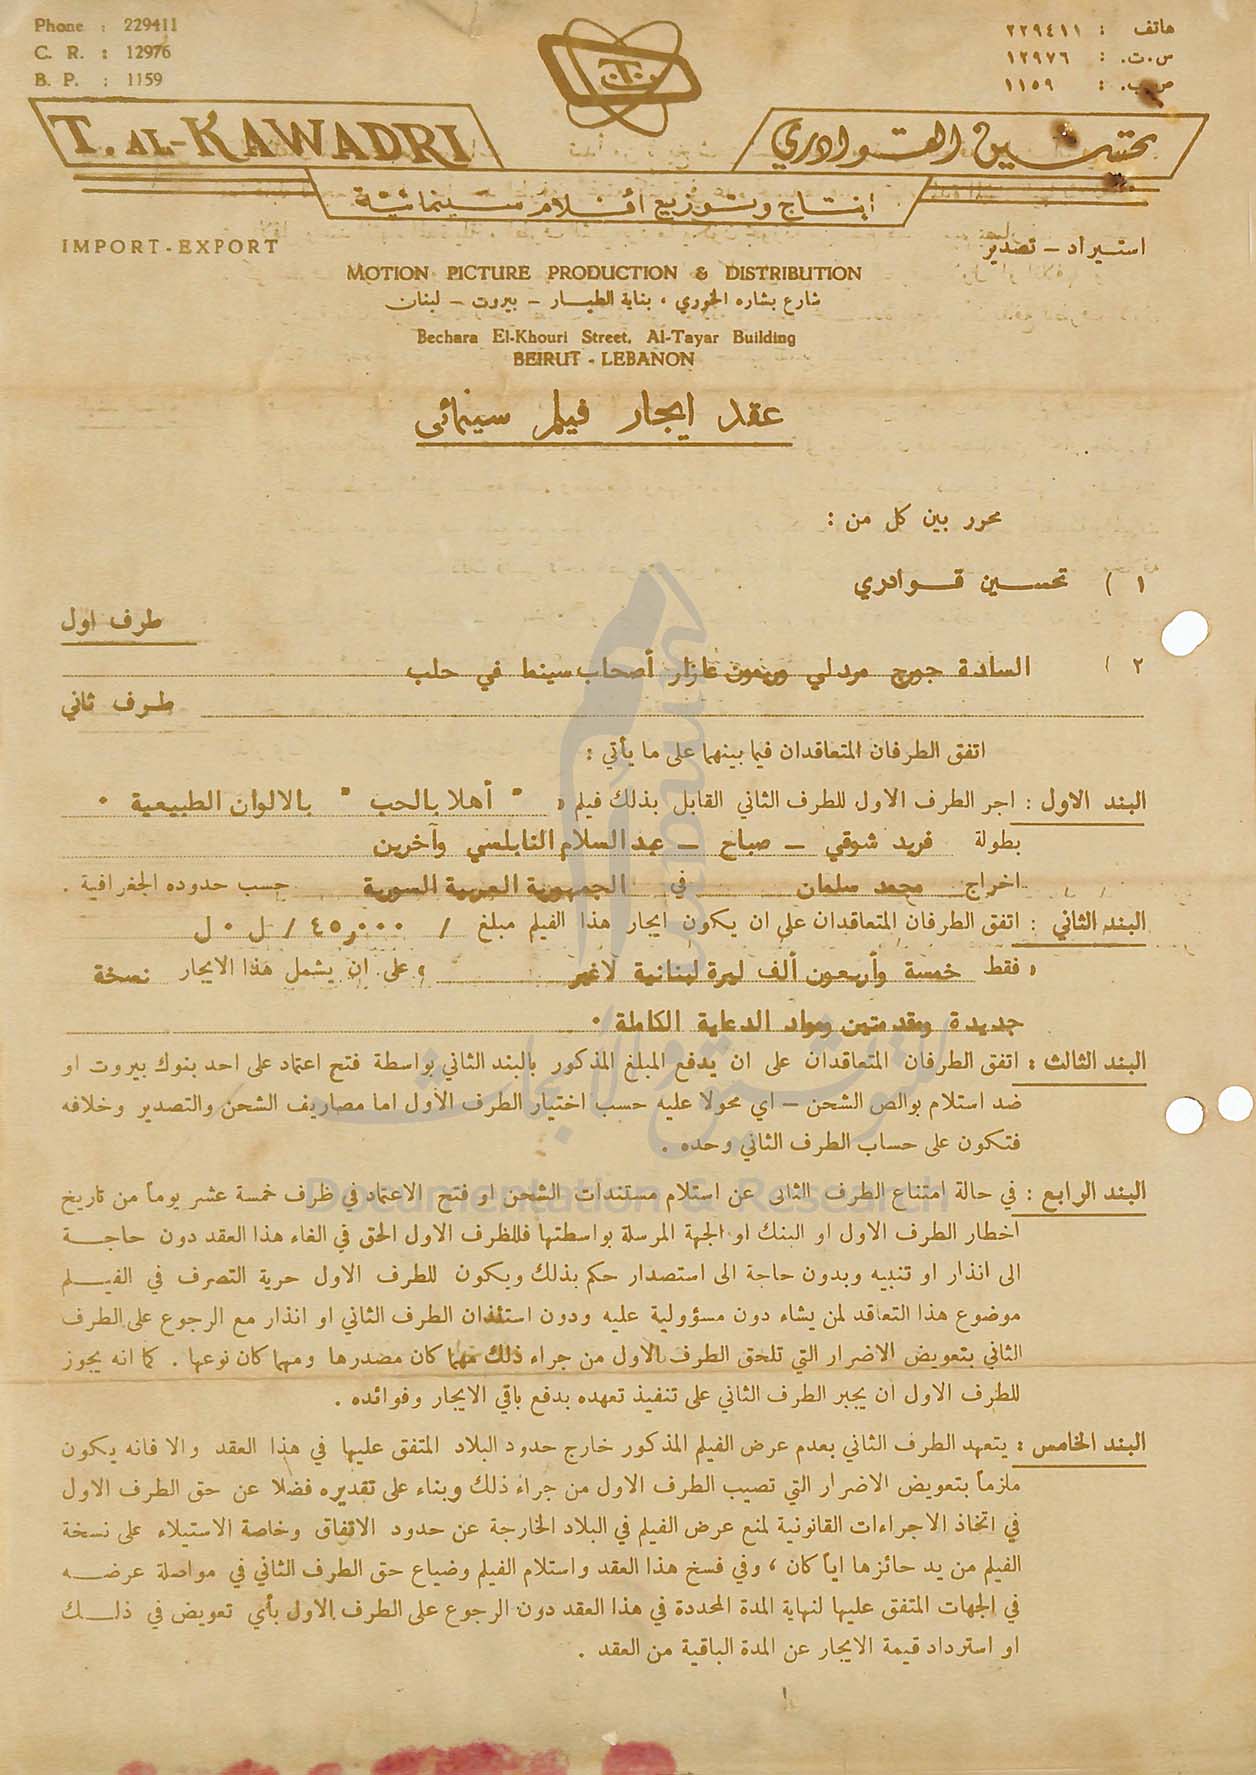 Phone : 229411
C. R. : 12976
B. P. : 1159
هاتف : ٢٢٩٤١١
س.ت. : ١٢٩٧٦
ص.ب. : ١١٥٩
T. AL-KAWADRI
تحسين القوادري
إنتاج وتوزيع أفلام سينمائية
IMPORT - EXPORT
استيراد - تصدير
MOTION PICTURE PRODUCTION & DISTRIBUTION
شارع بشاره الخوري ، بناية الطيار - بيروت - لبنان
Bechara El-Khouri Street, Al-Tayar Building
BEIRUT - LEBANON
عقد ايجار فيلم سينمائى
محرر بين كل من :
١ ) تحسين قوادري
طرف اول
٢ ) السادة جورج مردلي وريمون عازار أصحاب سينما في حلب
طرف ثاني
اتفق الطرفان المتعاقدان فيما بينهما على ما يأتي :
البند الاول : اجر الطرف الاول للطرف الثاني القابل بذلك فيلم « " أهلا بالحب " بالالوان الطبيعية .
بطولة فريد شوقي - صباح - عبد السلام النابلسي وآخرين
اخراج محمد سلمان في الجمهورية العربية السورية حسب حدوده الجغرافية .
البند الثاني : اتفق الطرفان المتعاقدان على ان يكون ايجار هذا الفيلم مبلغ / ٤٥,٠٠٠ / ل . ل
« فقط خمسة وأربعون ألف ليرة لبنانية لاغير » على ان يشمل هذا الايجار نسخة
جديدة ومقدمتين ومواد الدعاية الكاملة .
البند الثالث : اتفق الطرفان المتعاقدان على ان يدفع المبلغ المذكور بالبند الثاني بواسطة فتح اعتماد على احد بنوك بيروت او
ضد استلام بوالص الشحن - اي محولا عليه حسب اختيار الطرف الاول اما مصاريف الشحن والتصدير وخلافه
فتكون على حساب الطرف الثاني وحده .
البند الرابع : في حالة امتناع الطرف الثاني عن استلام مستندات الشحن او فتح الاعتماد في ظرف خمسة عشر يوماً من تاريخ
اخطار الطرف الاول او البنك او الجهة المرسلة بواسطتها فللطرف الاول الحق في الغاء هذا العقد دون حاجة
الى انذار او تنبيه وبدون حاجة الى استصدار حكم بذلك ويكون للطرف الاول حرية التصرف في الفيلم
موضوع هذا التعاقد لمن يشاء دون مسؤولية عليه ودون استئذان الطرف الثاني او انذار مع الرجوع على الطرف
الثاني بتعويض الاضرار التي تلحق الطرف الاول من جراء ذلك مهما كان مصدرها ومهما كان نوعها . كما انه يجوز
للطرف الاول ان يجبر الطرف الثاني على تنفيذ تعهده بدفع باقي الايجار وفوائده .
البند الخامس : يتعهد الطرف الثاني بعدم عرض الفيلم المذكور خارج حدود البلاد المتفق عليها في هذا العقد والا فانه يكون
ملزماً بتعويض الاضرار التي تصيب الطرف الاول من جراء ذلك وبناء على تقديره فضلا عن حق الطرف الاول
في اتخاذ الاجراءات القانونية لمنع عرض الفيلم في البلاد الخارجة عن حدود الاتفاق وخاصة الاستيلاء على نسخة
الفيلم من يد حائزها اياً كان ، وفي فسخ هذا العقد واستلام الفيلم وضياع حق الطرف الثاني في مواصلة عرضه
في الجهات المتفق عليها لنهاية المدة المحددة في هذا العقد دون الرجوع على الطرف الاول بأي تعويض في ذلك
او استرداد قيمة الايجار عن المدة الباقية من العقد .
Documentation & Research
للتوثيق والأبحاث